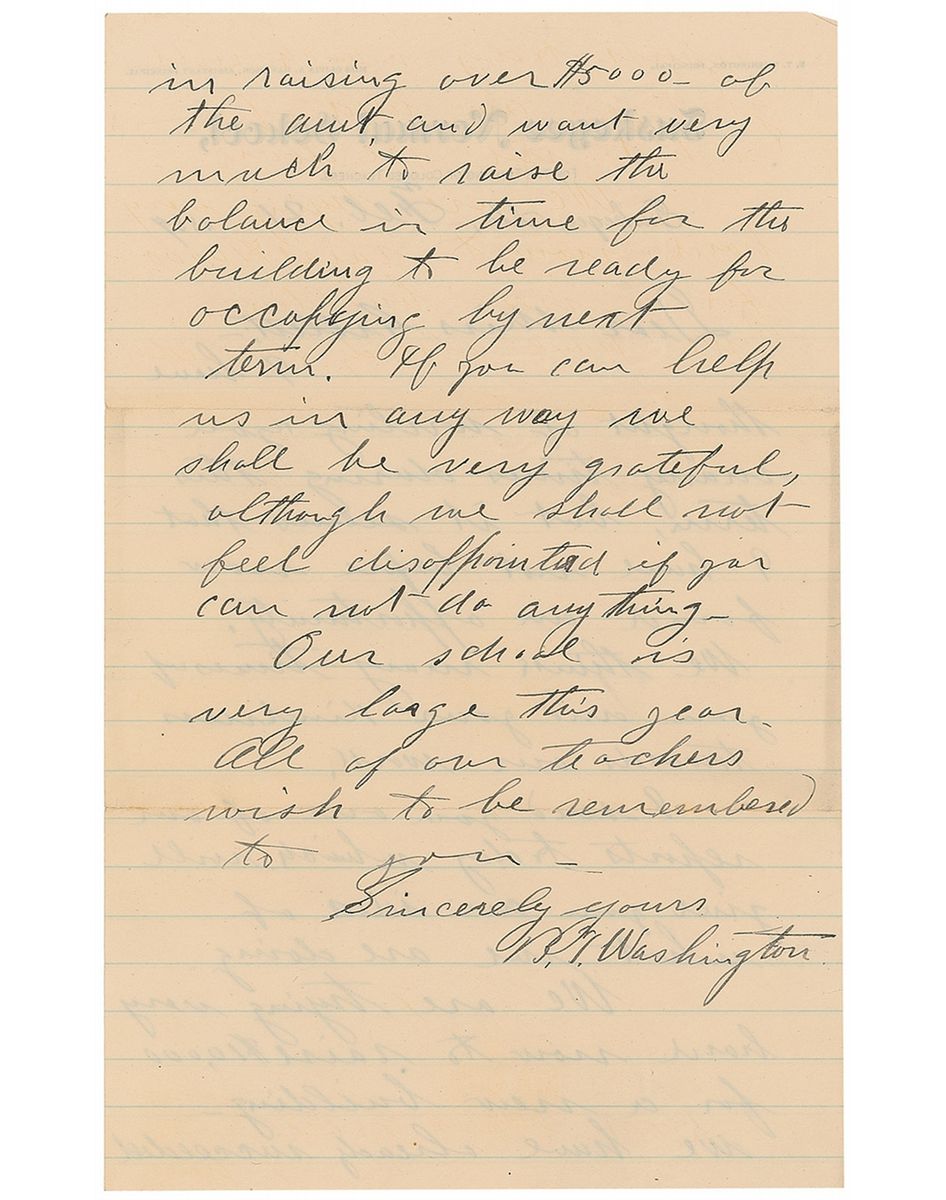 in raising over $5000- of
the amt, and want very
much to raise the
balance in time for the
building to be ready for
occupying by next
term. If you can help
us in any way we
shall be very grateful,
although we shall not
feel disappointed if you
can not do anything-
Our school is
very large this year-
All of our teachers
wish to be remembered
to you -
Sincerely yours
B.T. Washington.